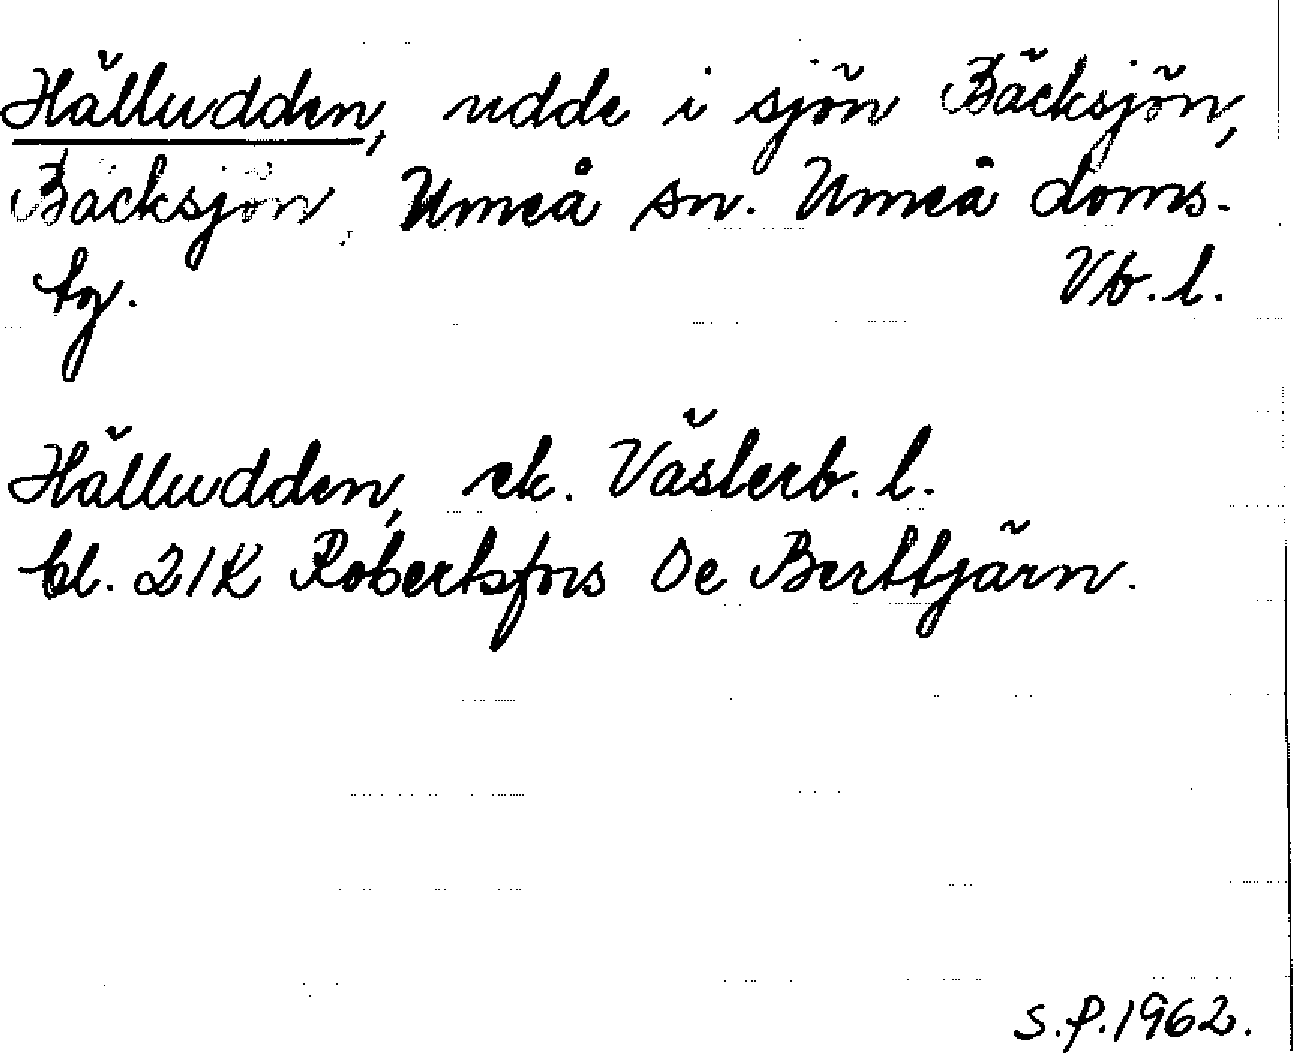 Hälludden, udde i sjön Bäcksjön,
Bäcksjön, Umeå sn. Umeå doms.
tg. Vb. l.
Hälludden, ek. Västerb. l.
bl. 21K Robertsfors 0e Berttjärn.
S.P. 1962.